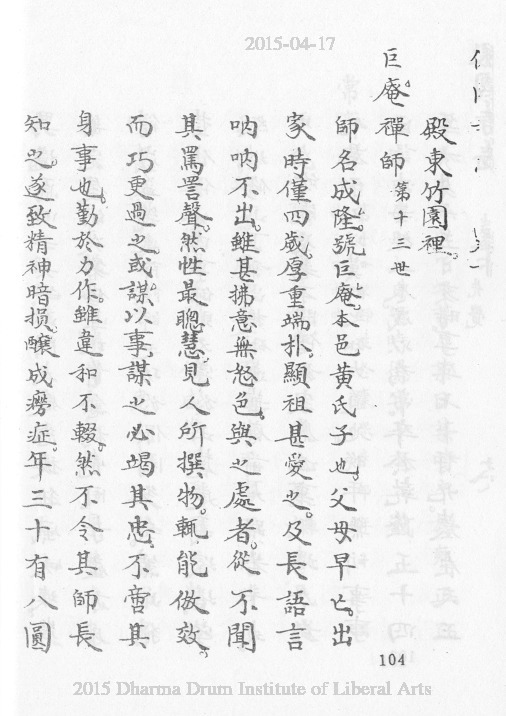 2015-04-17
殿東竹園裡。
巨庵禪師 第十三世
師名成隆。號巨庵。本邑黃氏子也。父母早亡。出
家時僅四歲。厚重端朴。顯祖甚愛之。及長語言
吶吶不出。雖甚拂意無怒色。與之處者。從不聞
其罵詈聲。然性最聰慧。見人所撰物。輒能倣效。
而巧更過之。或謀以事。謀之必竭其忠。不啻其
身事也。勤於力作。雖違和不輟。然不令其師長
知之。遂致精神暗損。釀成癆症。年三十有八圓
104
2015 Dharma Drum Institute of Liberal Arts